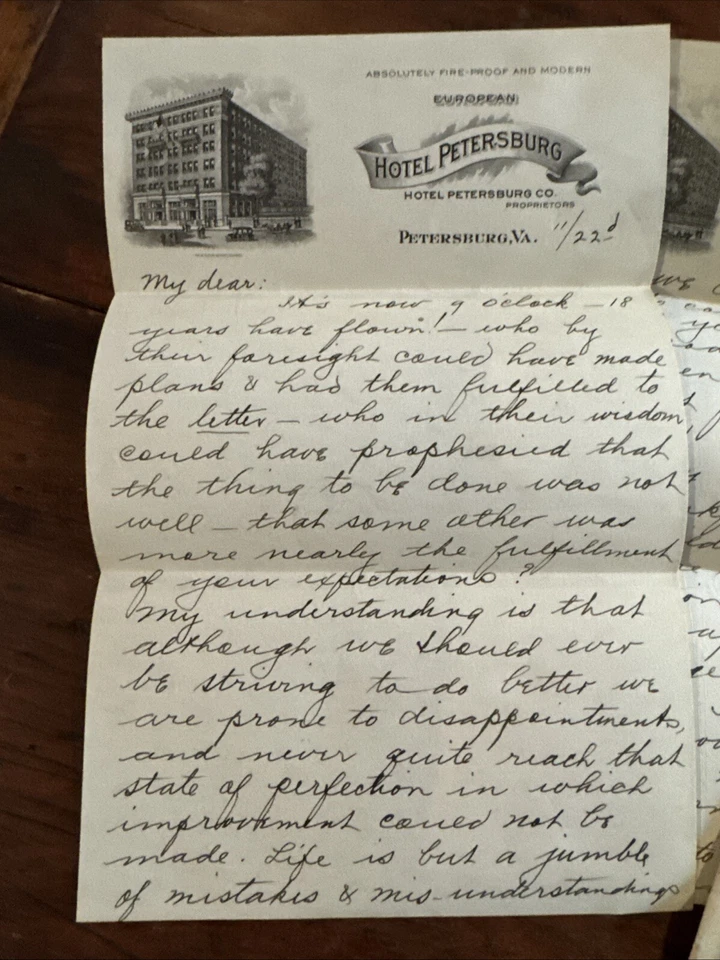 ABSOLUTELY FIRE-PROOF AND MODERN
EUROPEAN
HOTEL PETERSBURG
HOTEL PETERSBURG CO.
PROPRIETORS
PETERSBURG, VA. 11/22d
My dear:
It's now 9 o'clock — 18
years have flown! — who by
their foresight could have made
plans & had them fulfilled to
the letter — who in their wisdom,
could have prophesied that
the thing to be done was not
well — that some other was
more nearly the fulfillment
of your expectations?
My understanding is that
although we should ever
be striving to do better we
are prone to disappointments,
and never quite reach that
state of perfection in which
improvement could not be
made. Life is but a jumble
of mistakes & mis-understandings